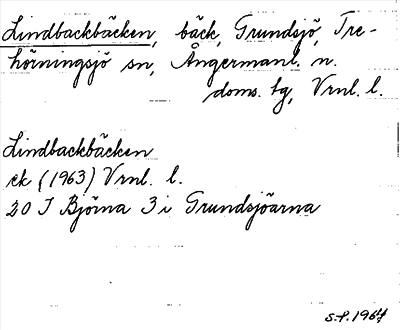 Lindbackbäcken, bäck, Grundsjö, Tre-
hörningsjö sn, Ångermanl. n.
doms. tg, Vrnl. l.
Lindbackbäcken
ek (1963) Vrnl. l.
20 I Björna 3 i Grundsjöarna
S.P. 1964